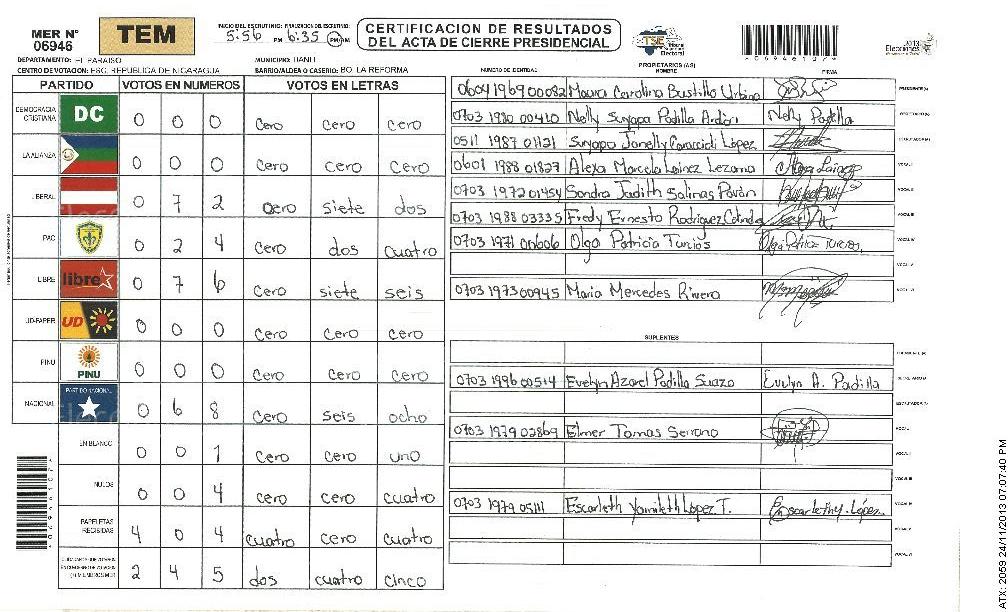 MER N° 06946
TEM
INICIO DEL ESCRUTINIO: FINALIZACION DEL ESCRUTINIO:
5:56 PM 6:35 PM/AM
CERTIFICACION DE RESULTADOS
DEL ACTA DE CIERRE PRESIDENCIAL
TSE Tribunal Supremo Electoral
*06946107*
2013 Elecciones
DEPARTAMENTO: EL PARAISO MUNICIPIO: DANLI
CENTRO DE VOTACION: ESC. REPUBLICA DE NICARAGUA BARRIO/ALDEA O CASERIO: BO. LA REFORMA
PARTIDO VOTOS EN NUMEROS VOTOS EN LETRAS
DEMOCRACIA CRISTIANA DC 0 0 0 cero cero cero
LA ALIANZA 0 0 0 cero cero cero
LIBERAL 0 7 2 cero siete dos
PAC 0 2 4 cero dos cuatro
LIBRE libre 0 7 6 cero siete seis
UD-FAPER UD 0 0 0 cero cero cero
PINU PINU 0 0 0 cero cero cero
NACIONAL PARTIDO NACIONAL 0 6 8 cero seis ocho
EN BLANCO 0 0 1 cero cero uno
NULOS 0 0 4 cero cero cuatro
PAPELETAS RECIBIDAS 4 0 4 cuatro cero cuatro
2 4 5 dos cuatro cinco
PROPIETARIOS (AS)
NUMERO DE IDENTIDAD NOMBRE FIRMA
0604 1969 00082 Maura Carolina Bustillo Urbina
0703 1980 00410 Nelly Suyapa Padilla Ardón Nelly Padilla
0511 1987 01121 Suyapa Janelly Caraccioli López
0601 1988 01827 Alexa Marcela Lainez Lezama
0703 1972 01454 Sondra Judith Salinas Pavón
0703 1988 03335 Fredy Ernesto Rodriguez
0703 1971 00606 Olga Patricia Turcios
0703 1973 00945 Maria Mercedes Rivera
SUPLENTES
0703 1996 00514 Evelyn Azarel Padilla Suazo Evelyn A. Padilla
0703 1979 02869 Elmer Tomas Serrano
0703 1979 05111 Escarleth Yamileth López T.
ATX: 2059 24/11/2013 07:07:40 PM